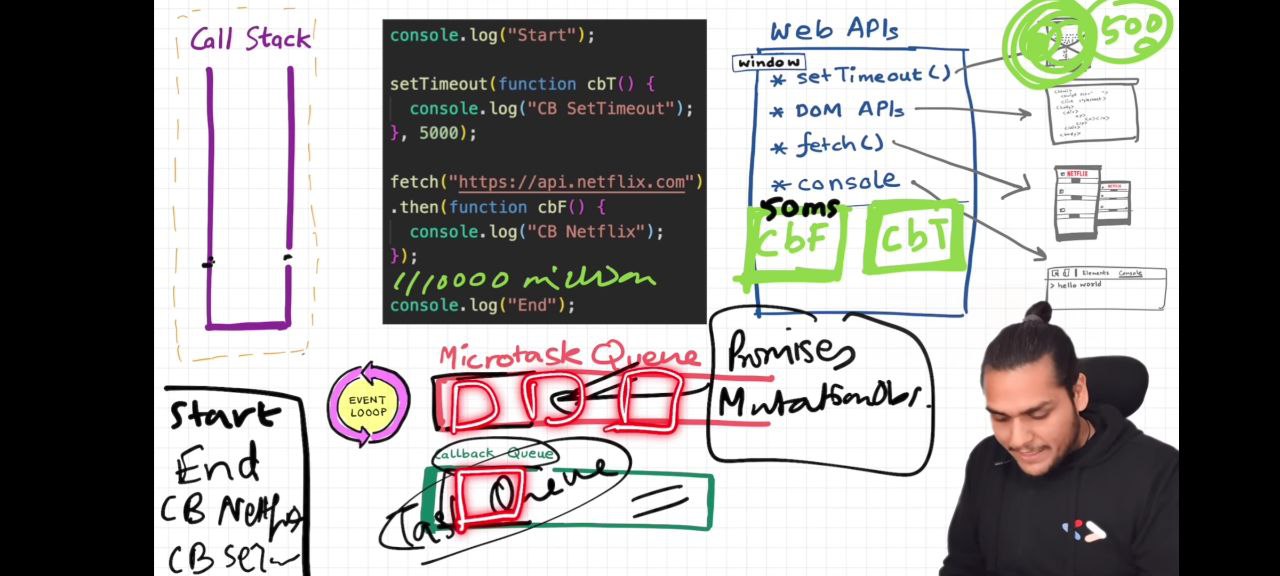 Call Stack
console.log("Start");
setTimeout(function cbT() {
console.log("CB SetTimeout");
}, 5000);
fetch("https://api.netflix.com")
.then(function cbF() {
console.log("CB Netflix");
});
1//10000 million
console.log("End");
Web APIs
window
* setTimeout()
* DOM APIs
* fetch()
* console
50ms
CbF
CbT
500
NETFLIX
Elements Console
> hello world
Microtask Queue
Promises
MutationObs.
EVENT
LOOOP
Callback Queue
Task Queue
Start
End
CB Netflix
CB Set